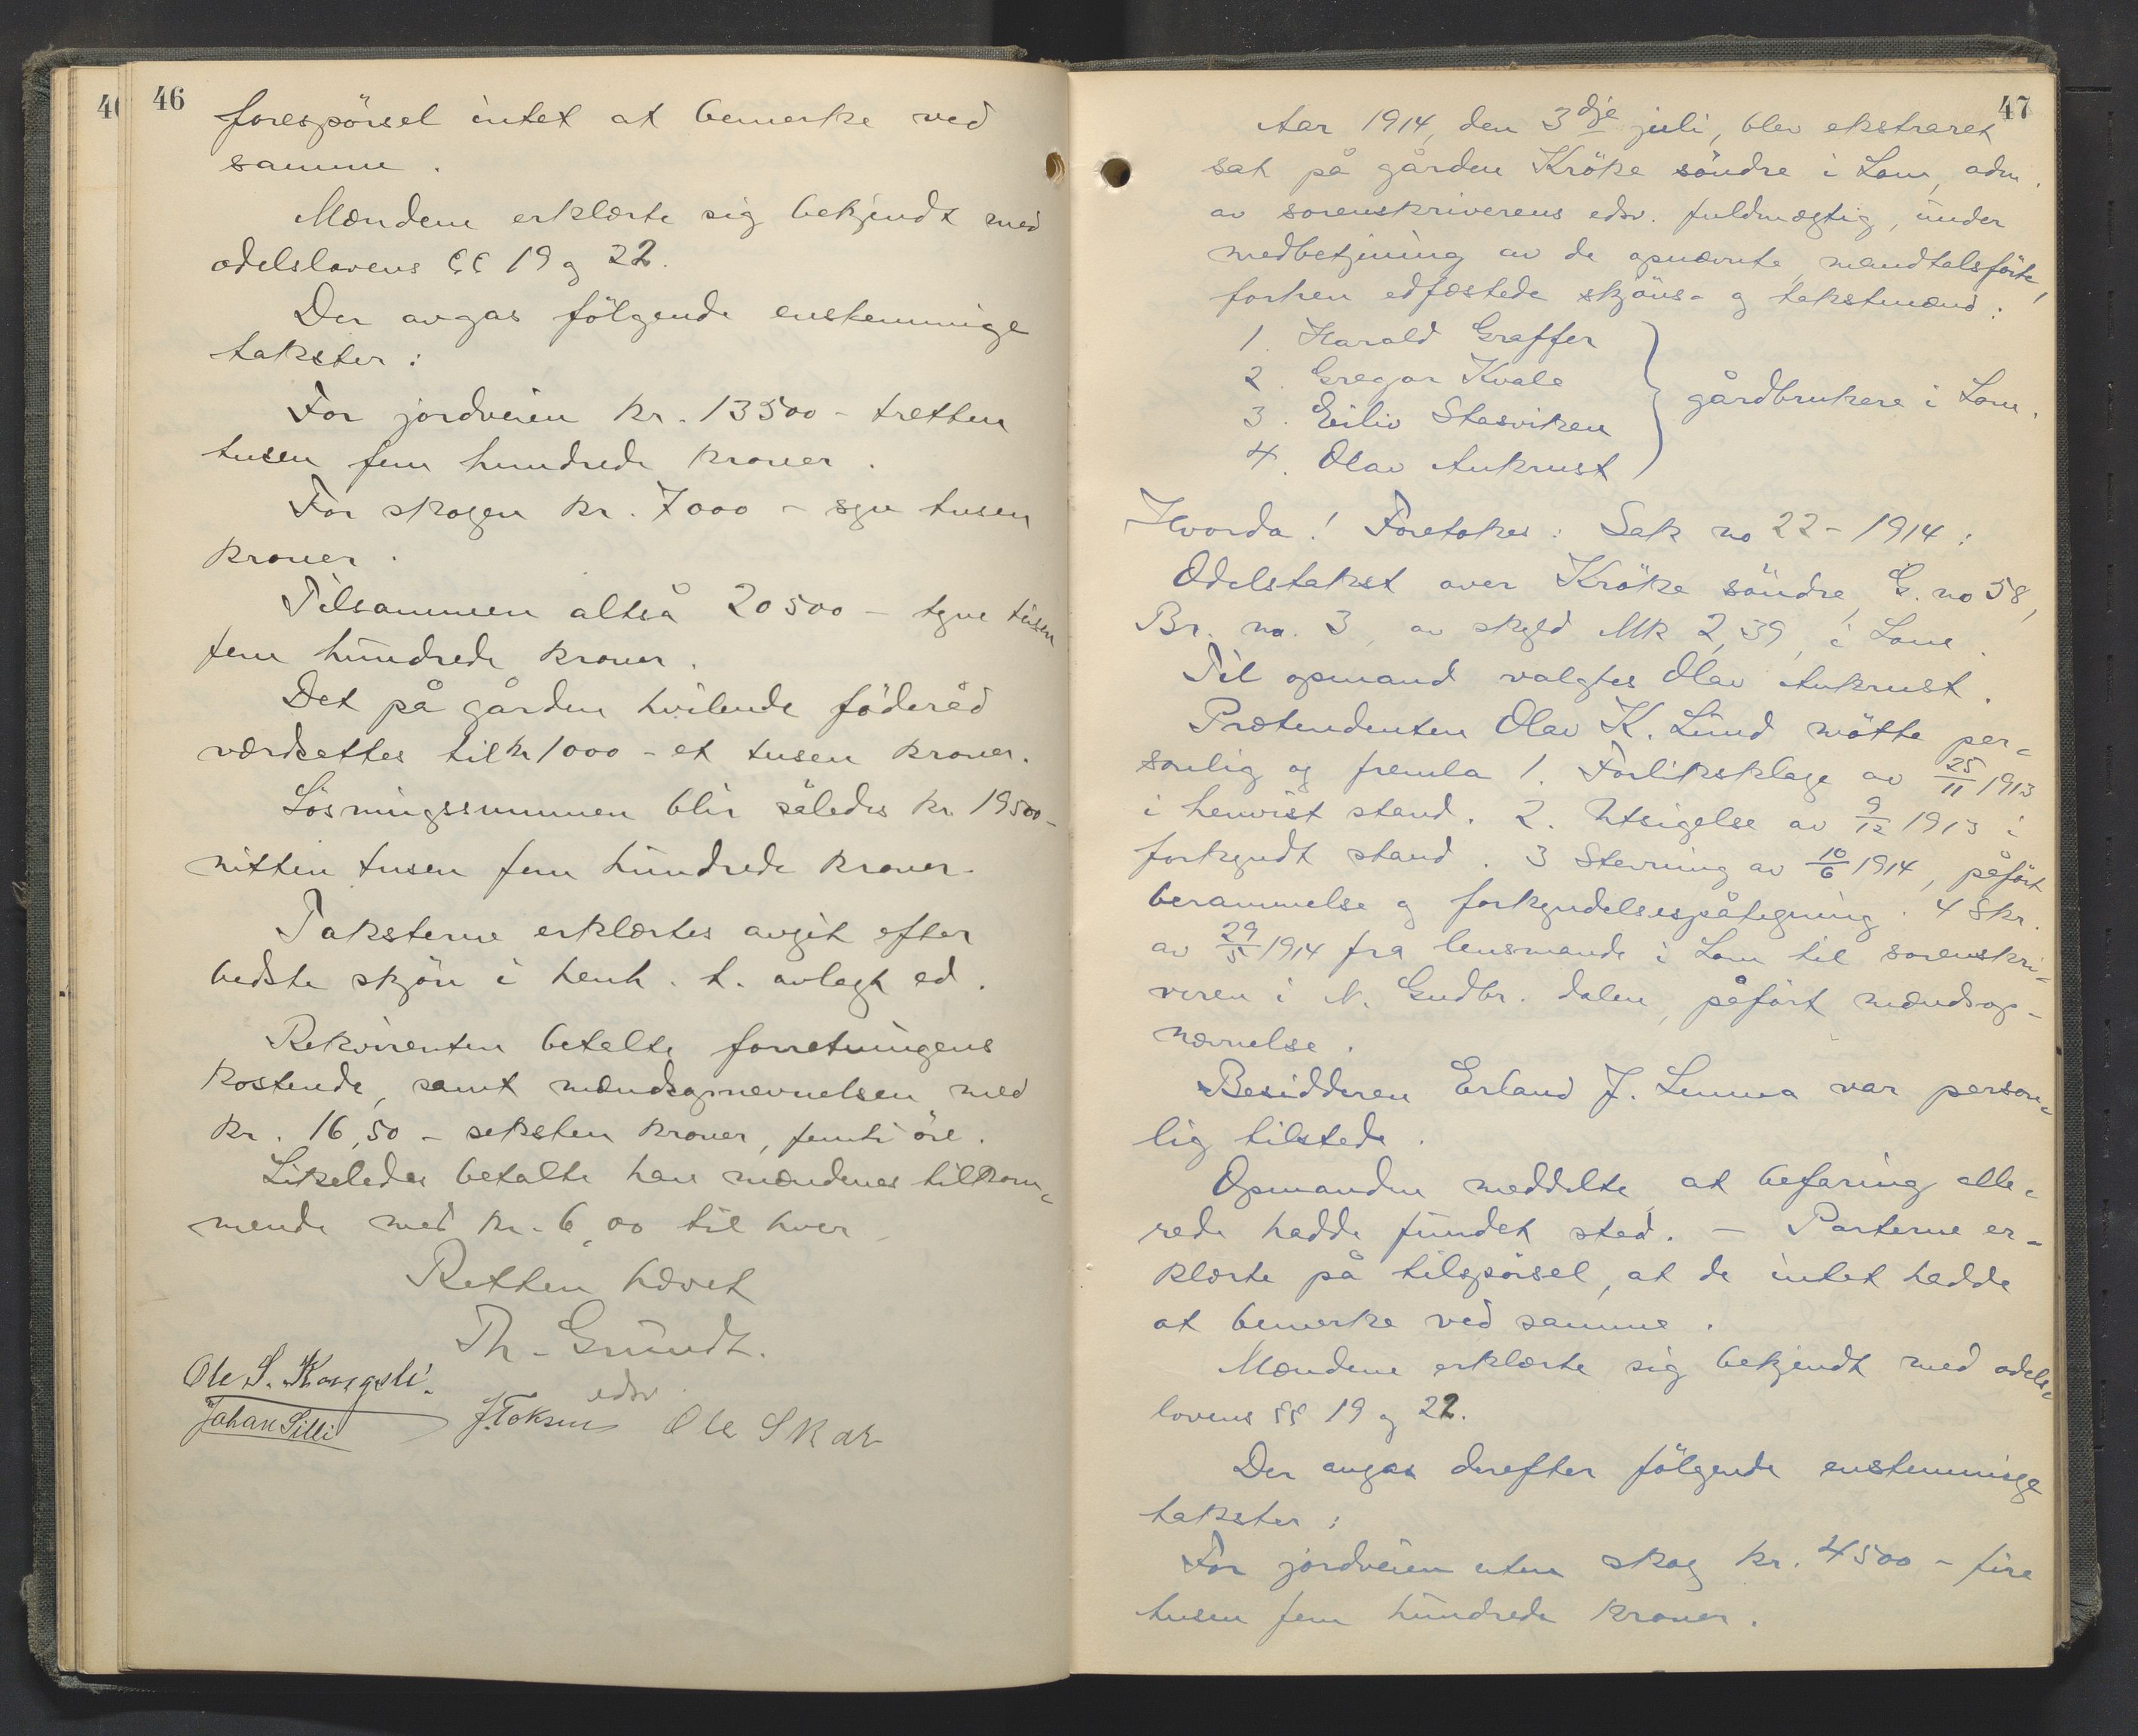 46
forespörsel intet at bemerke ved
samme.
Mændene erklærte sig bekjendt med
odelslovens §§ 19 og 22.
Der avgas fölgende enstemmige
takster:
For jordveien kr. 13500 - tretten
tusen fem hundrede kroner.
For skogen kr. 7000 - syv tusen
kroner.
Tilsammen altså 20500 - tyve tusen
fem hundrede kroner.
Det på gården hvilende föderåd
værdsettes til kr 1000 - et tusen kroner.
Lösningssummen blir således kr. 19500-
nitten tusen fem hundrede kroner.
Taksterne erklærtes avgit efter
bedste skjön i henh. t. avlagt ed.
Rekvirenten betalte forretningens
kostende, samt mændsopnevnelsen med
kr. 16,50 - seksten kroner, femti öre.
Likeledes betalte han mændenes tilkom-
mende med kr. 6,00 til hver
Retten hævet
Th. Grundt.
edsv.
Ole S. Kongsli.
Johan Silli
Ole Skar
47
Aar 1914, den 3dje juli, blev ekstraret
sat på gården Kröke söndre i Lom, adm.
av sorenskriverens edsv. fuldmægtig, under
medbetjening av de opnævnte, mandtalsförte,
forhen edfæstede skjöns- og takstmænd:
1. Harald Graffer
2. Gregor Kvale
3. Eiliv Stasviken
4. Olav Aukrust
gårdbrukere i Lom.
Hvorda! Foretokes: Sak no 22 - 1914:
Odelstakst over Kröke söndre, G. no 58,
Br. no. 3, av skyld Mk 2,39, i Lom.
Til opmand valgtes Olav Aukrust.
Prætendenten Olav K. Lund mötte per-
sonlig og fremla 1. Forliksklage av 25/11 1913
i henvist stand. 2. Utsigelse av 9/12 1913 i
forkyndt stand. 3 Stevning av 10/6 1914, påfört
berammelse og forkyndelsespåtegning. 4 Skr.
av 29/5 1914 fra lensmanden i Lom til sorenskri-
veren i N. Gudbr. dalen, påfört mændsop-
nævnelse.
Besidderen Erland J. Lunna var person-
lig tilstede.
Opmanden meddelte, at befaring alle-
rede hadde fundet sted. - Parterne er-
klærte på tilspörsel, at de intet hadde
at bemerke ved samme.
Mændene erklærte sig bekjendt med odels-
lovens §§ 19 og 22.
Der avgas derefter fölgende enstemmige
takster:
For jordveien uten skog kr. 4500 - fire
tusen fem hundrede kroner.